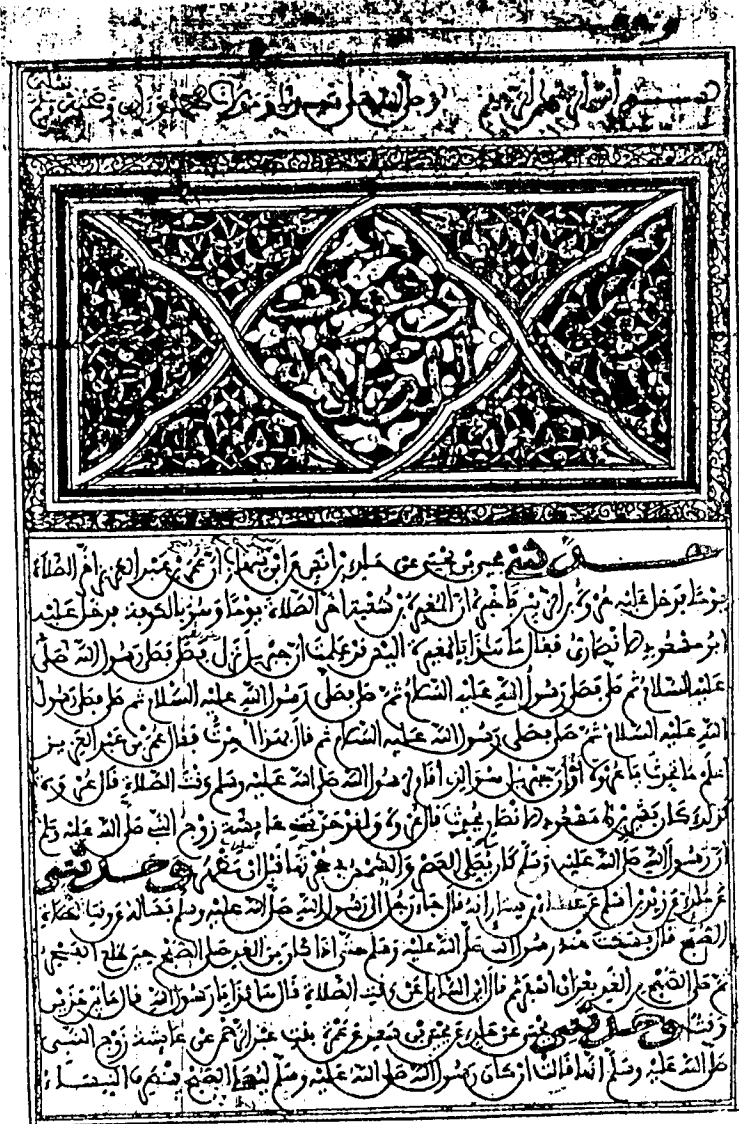 بسم الله الرحمن الرحيم وصلى الله على سيدنا ومولانا محمد وصحبه
حدثني يحيى بن يحيى عن مالك بن أنس عن ابن شهاب أن عمر بن عبد العزيز أخر الصلاة
يوما فدخل عليه عروة بن الزبير فأخبره أن المغيرة بن شعبة أخر الصلاة يوما وهو بالكوفة فدخل عليه
أبو مسعود الأنصاري فقال ما هذا يا مغيرة أليس قد علمت أن جبريل نزل فصلى فصلى رسول الله صلى
عليه السلام ثم صلى فصلى رسول الله عليه السلام ثم صلى فصلى رسول الله عليه السلام ثم صلى فصلى رسول
الله عليه السلام ثم صلى فصلى رسول الله عليه السلام ثم قال بهذا أمرت فقال عمر بن عبد العزيز
اعلم ما تحدث يا عروة أو أن جبريل هو الذي أقام لرسول الله صلى الله عليه وسلم وقت الصلاة قال عروة
كذلك كان بشير بن أبي مسعود الأنصاري يحدث قال عروة ولقد حدثتني عايشة زوج النبي صلى الله عليه وسلم
أن رسول الله صلى الله عليه وسلم كان يصلي العصر والشمس في حجرتها قبل أن تظهر وحدثني يحيى
عن مالك عن زيد بن أسلم عن عطاء بن يسار أنه قال جاء رجل إلى رسول الله صلى الله عليه وسلم فسأله عن وقت صلاة
الصبح قال فسكت عنه رسول الله صلى الله عليه وسلم حتى إذا كان من الغد صلى الصبح حين طلع الفجر
ثم صلى الصبح من الغد بعد أن أسفر ثم قال أين السايل عن وقت الصلاة قال ها أنذا يا رسول الله قال ما بين هذين
وقت وحدثني يحيى عن مالك عن يحيى بن سعيد عن عمرة بنت عبد الرحمن عن عايشة زوج النبي
صلى الله عليه وسلم أنها قالت إن كان رسول الله صلى الله عليه وسلم ليصلي الصبح فينصرف النساء